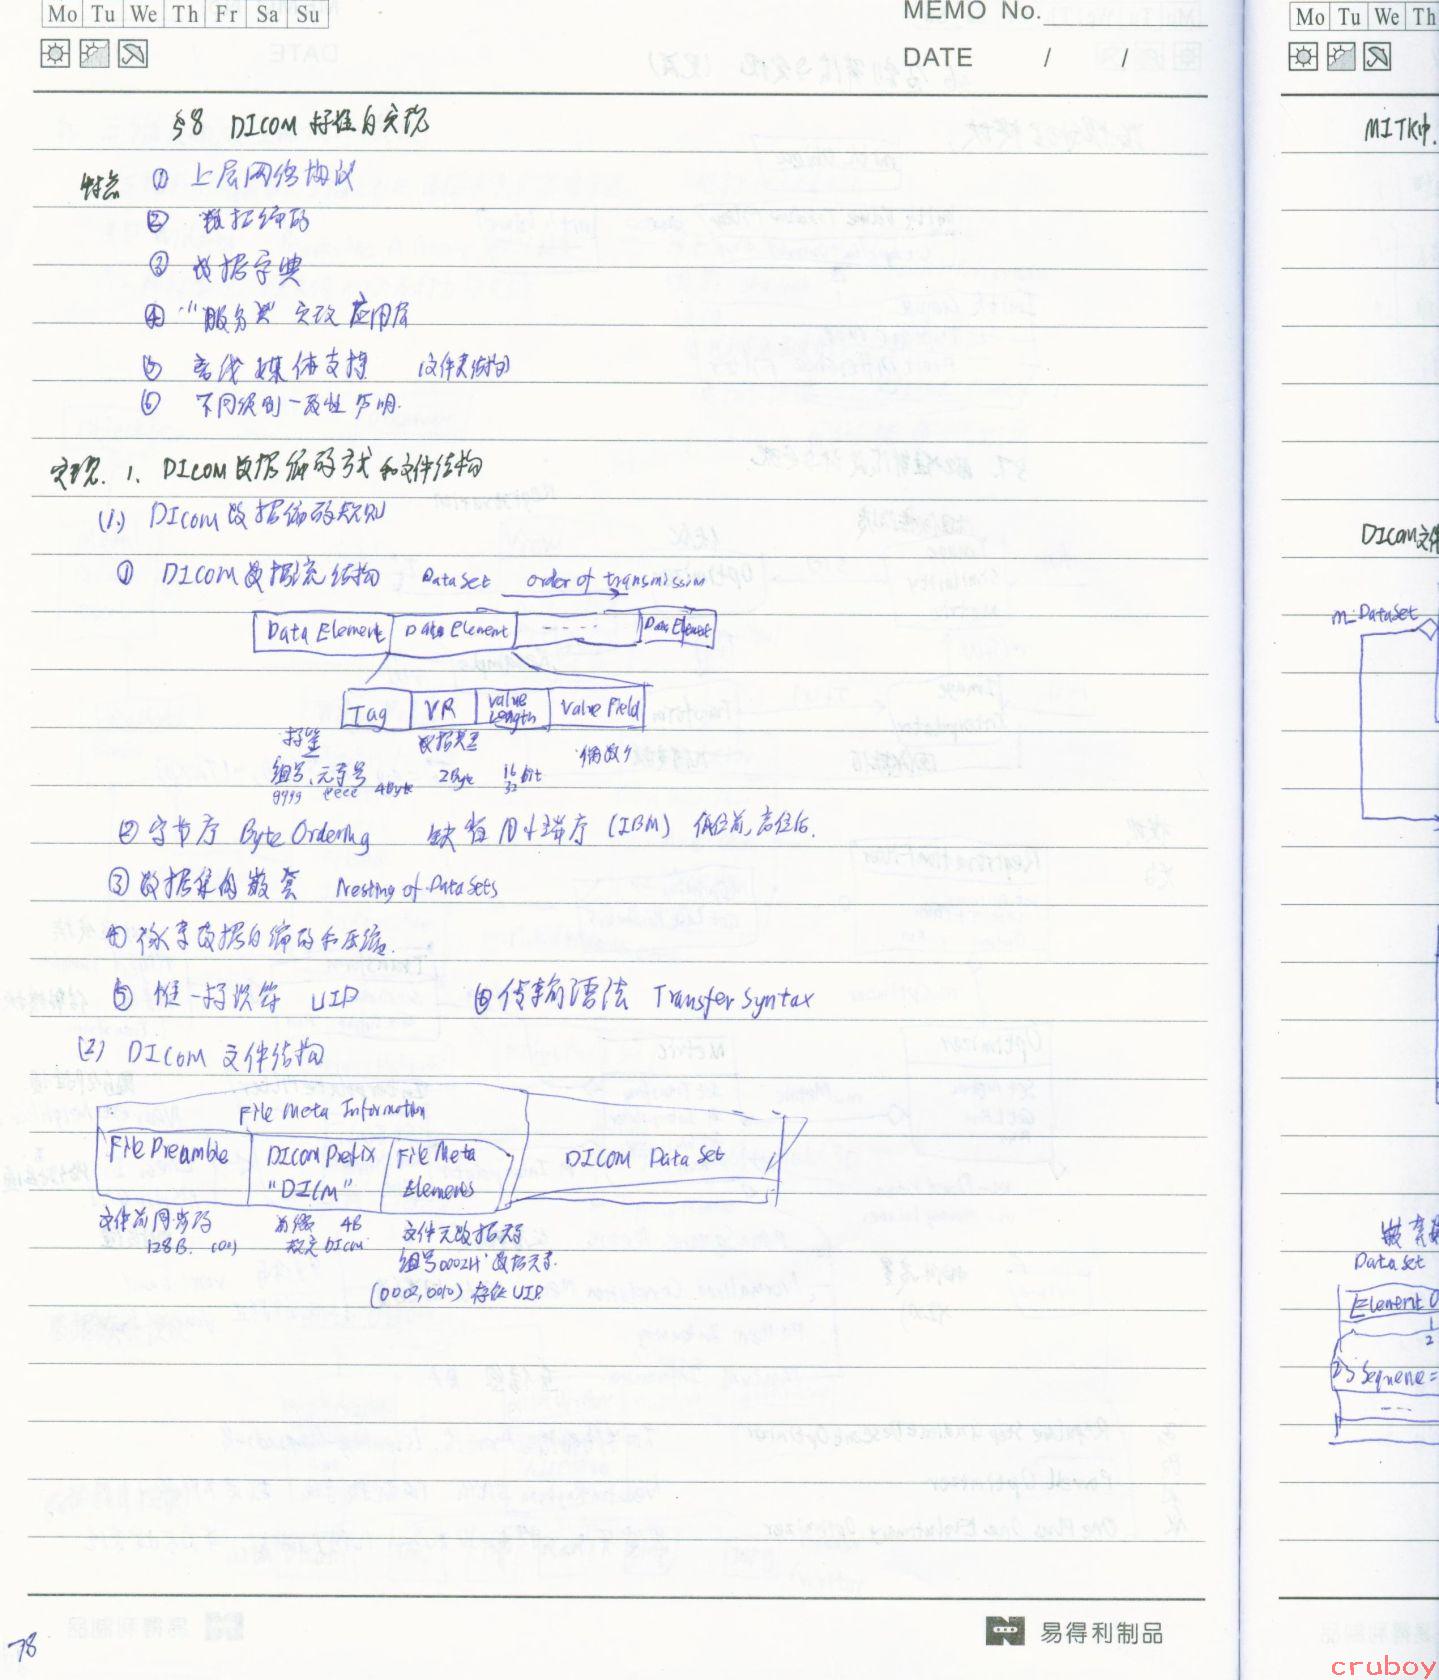 Mo Tu We Th Fr Sa Su
MEMO No.
DATE / /
§8 DICOM 标准的实现
特点 ① 上层网络协议
② 数据编码
③ 数据字典
④ "服务类" 定改 应用层
⑤ 离线媒体支持 (文件夹结构)
⑥ 不同级别一致性声明.
实现. 1. DICOM 数据编码方式和文件结构
(1.) DICOM 数据编码规则
① DICOM 数据流结构 DataSet order of transmission
Data Element Data Element ---- Data Element
Tag VR Value Length Value Field
标签 数据类型 偶数个
组号、元素号 4Byte 2Byte 16 bit
gggg eeee 32
② 字节序 Byte Ordering 缺省用小端序 (IBM) 低位前,高位后.
③ 数据集的嵌套 Nesting of Data Sets
④ 像素数据的编码和压缩.
⑤ 惟一标识符 UID ⑥ 传输语法 Transfer Syntax
(2) DICOM 文件结构
File Meta Information
File Preamble DICOM Prefix File Meta DICOM Data Set
"DICM" Elements
文件前同步码 前缀 4B 文件元数据元素
128B. (00) 校定DICM 组号0002H 数据元素.
(0002,0010) 存在 UID
78
易得利制品
Mo Tu We Th
MITK中.
DICOM文件
m_DataSet
嵌套
Data Set
Element 0
1
2
23 Sequene =
---
cruboy